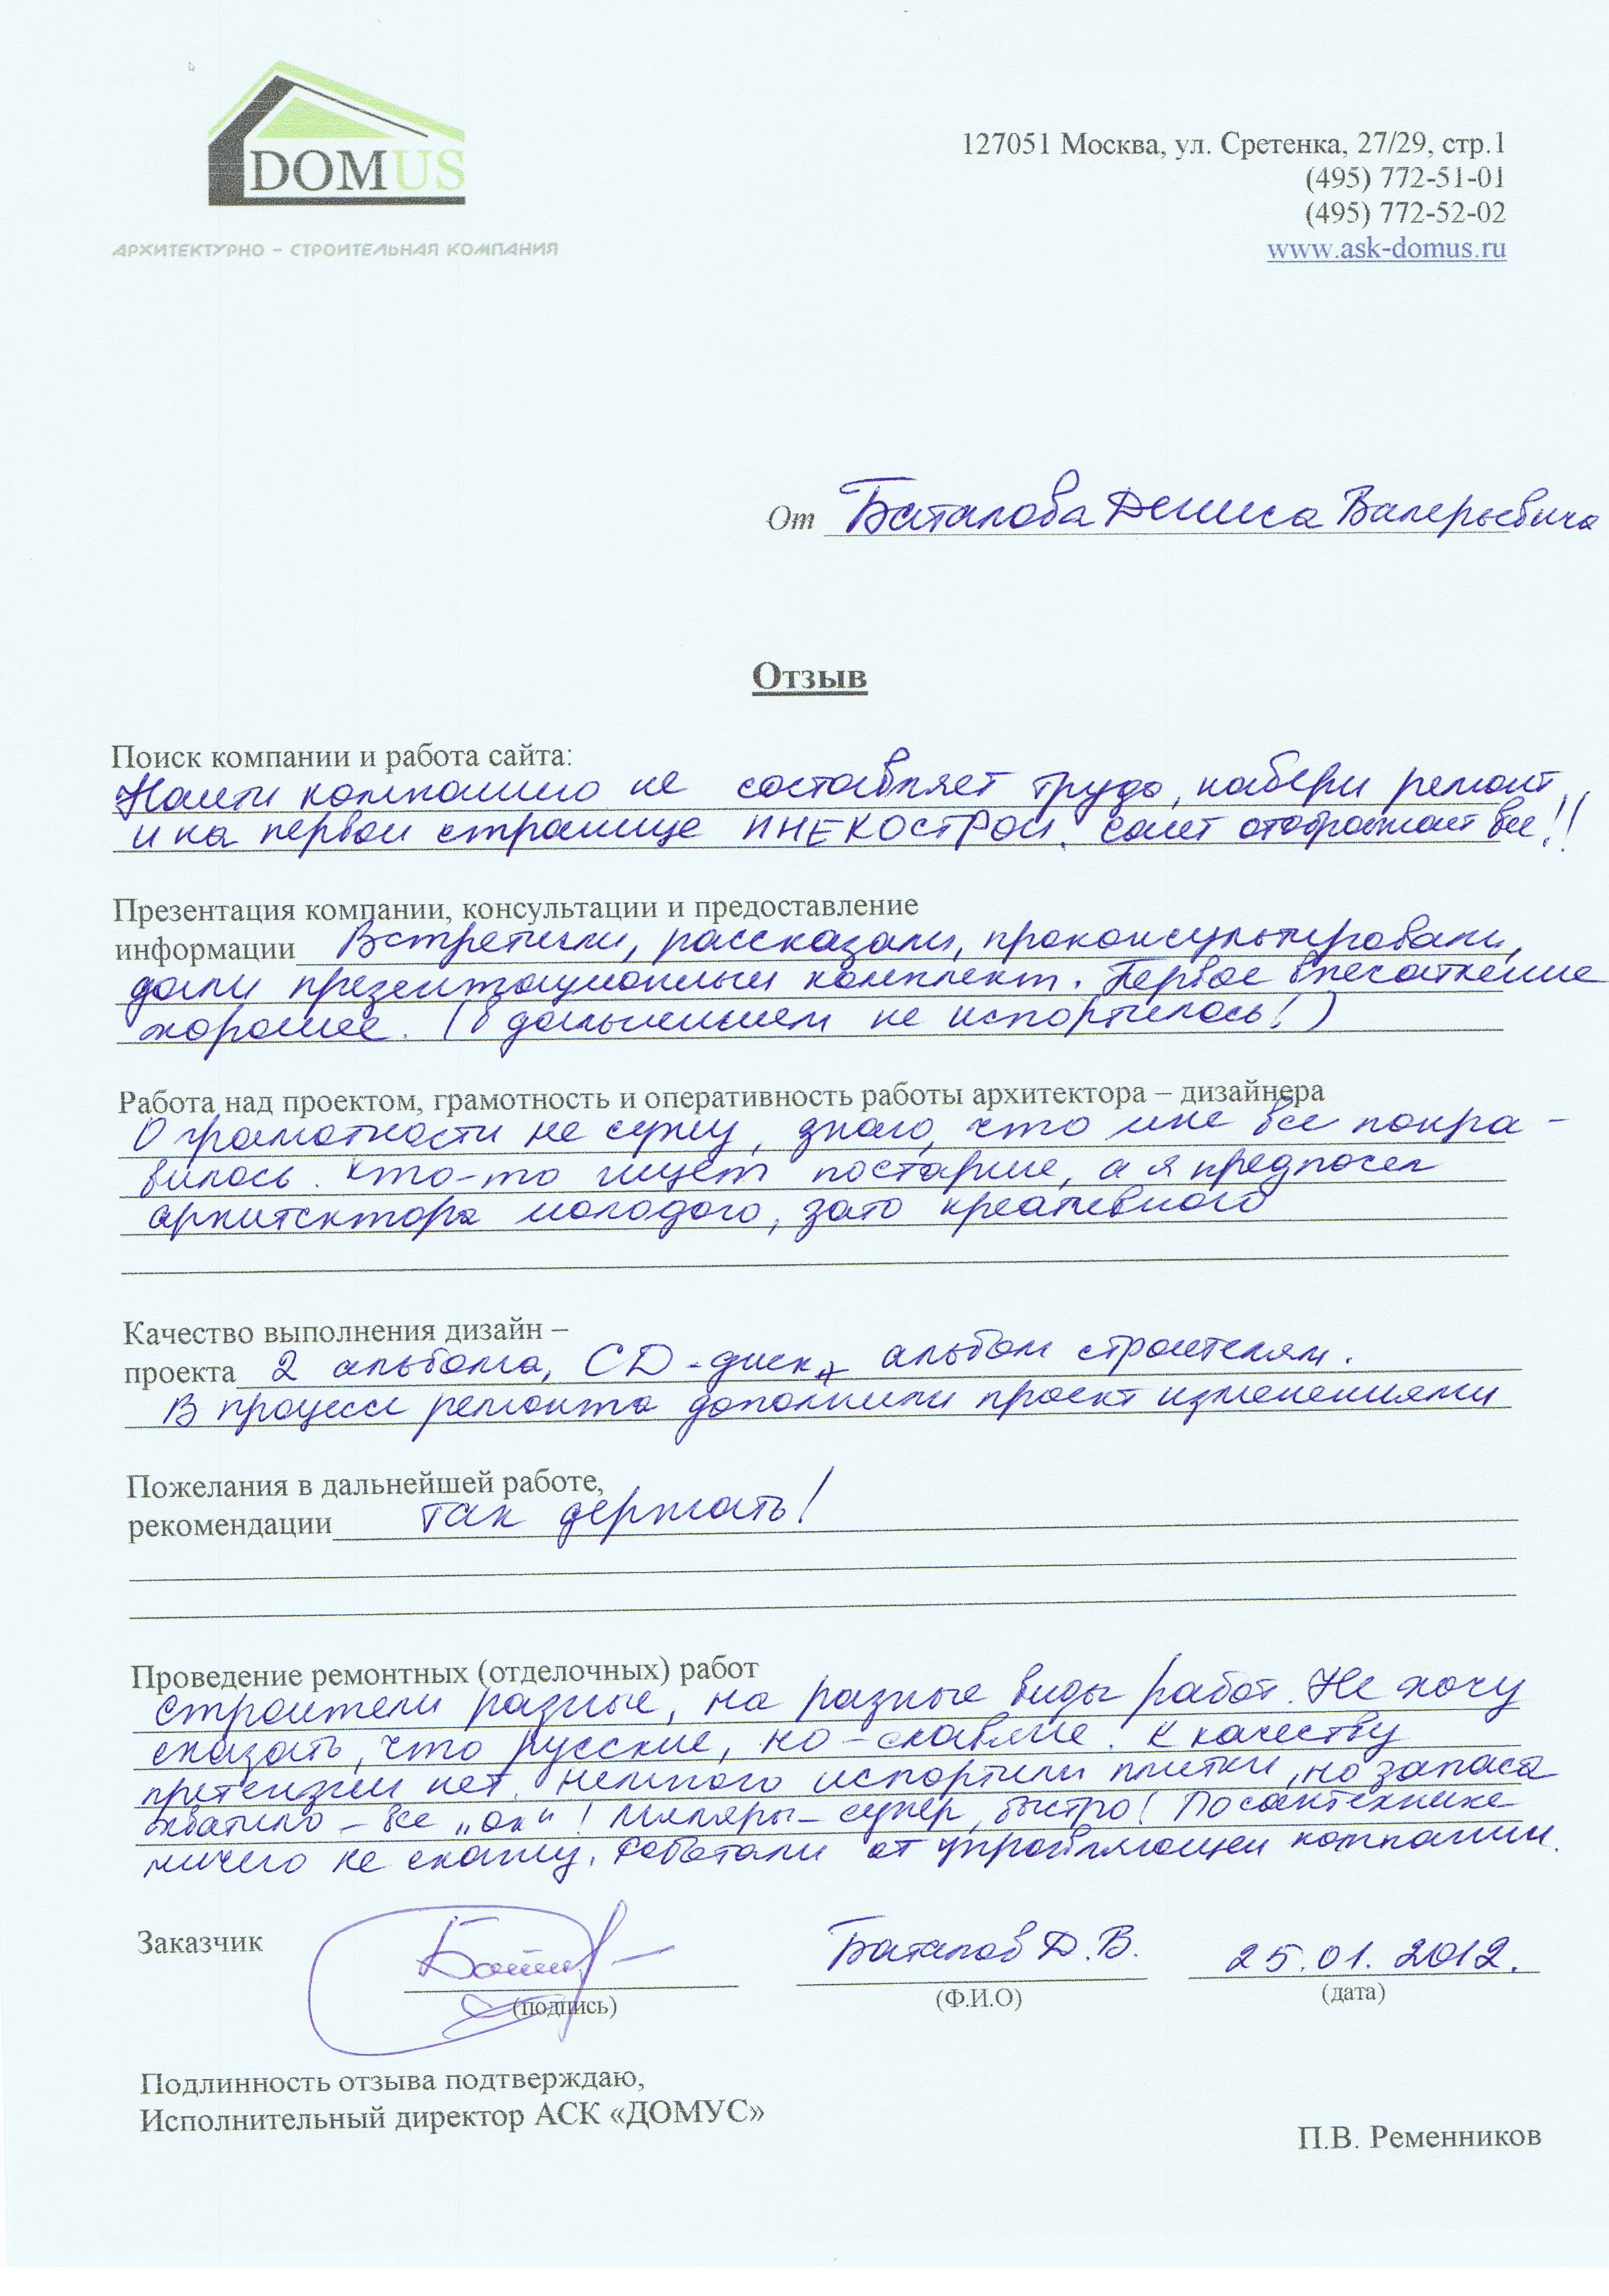 DOMUS
АРХИТЕКТУРНО – СТРОИТЕЛЬНАЯ КОМПАНИЯ
127051 Москва, ул. Сретенка, 27/29, стр.1
(495) 772-51-01
(495) 772-52-02
www.ask-domus.ru
От Баталова Дениса Валерьевича
Отзыв
Поиск компании и работа сайта:
Найти компанию не составляет труда, набери ремонт,
и на первой странице ИНЕКОСТРОЙ. Сайт отображает все!!
Презентация компании, консультации и предоставление
информации Встретили, рассказали, проконсультировали,
дали презентационный комплект. Первое впечатление
хорошее. (в дальнейшем не испортилось!)
Работа над проектом, грамотность и оперативность работы архитектора – дизайнера
О грамотности не сужу, знаю, что мне все понра -
вилось. Кто-то ищет постарше, а я предпочел
архитектора молодого, зато креативного
Качество выполнения дизайн –
проекта 2 альбома, CD-диск, альбом строителям.
В процессе ремонта дополнили проект изменениями
Пожелания в дальнейшей работе,
рекомендации так держать!
Проведение ремонтных (отделочных) работ
Строители разные, на разные виды работ. Не хочу
сказать, что русские, но – славяне. К качеству
претензий нет. Немного испортили плитки, но запаса
хватило – все „ок“! Маляры – супер, быстро! По сантехнике
ничего не скажу. Работали от управляющей компании.
Заказчик Баталов Д.В. 25.01.2012.
(подпись) (Ф.И.О) (дата)
Подлинность отзыва подтверждаю,
Исполнительный директор АСК «ДОМУС»
П.В. Ременников